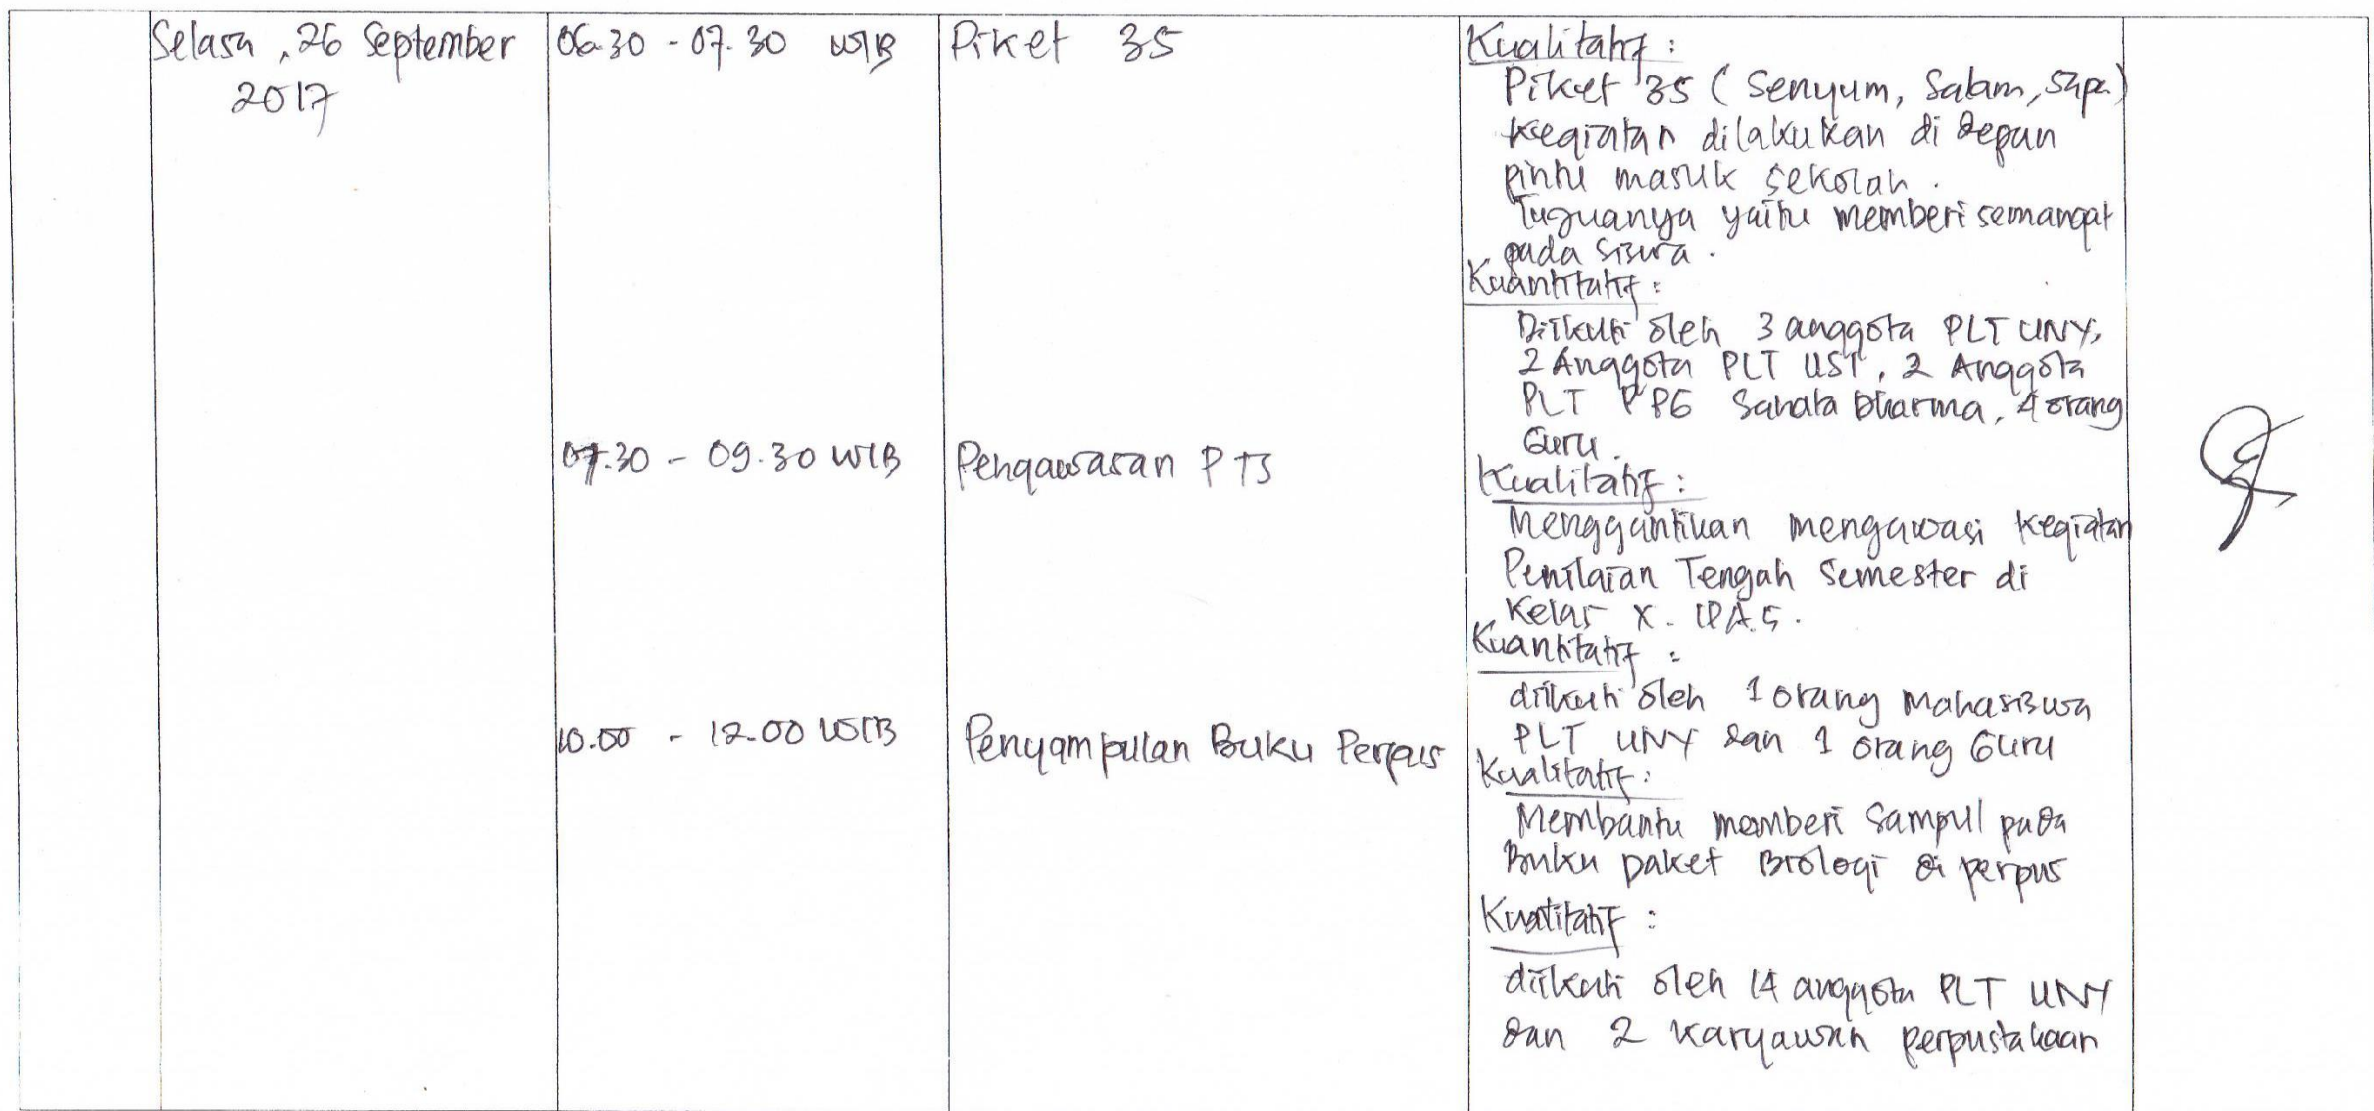 Selasa, 26 September
2017
06.30 - 07.30 WIB
Piket 3S
Kualitatif :
Piket 3S (Senyum, Salam, Sapa)
Kegiatan dilakukan di depan
pintu masuk sekolah.
Tujuanya yaitu memberi semangat
pada siswa.
Kuantitatif :
Diikuti oleh 3 anggota PLT UNY,
2 Anggota PLT UST, 2 Anggota
PLT PPG Sanata Dharma, 4 orang
Guru.
07.30 - 09.30 WIB
Pengawasan PTS
Kualitatif :
Menggantikan mengawasi kegiatan
Penilaian Tengah Semester di
Kelas X. IPA.5.
Kuantitatif :
diikuti oleh 1 orang Mahasiswa
PLT UNY dan 1 orang Guru
10.00 - 12.00 WIB
Penyampulan Buku Perpus
Kualitatif :
Membantu memberi Sampul pada
Buku paket Biologi di perpus
Kuatitatif :
diikuti oleh 14 anggota PLT UNY
dan 2 karyawan perpustakaan